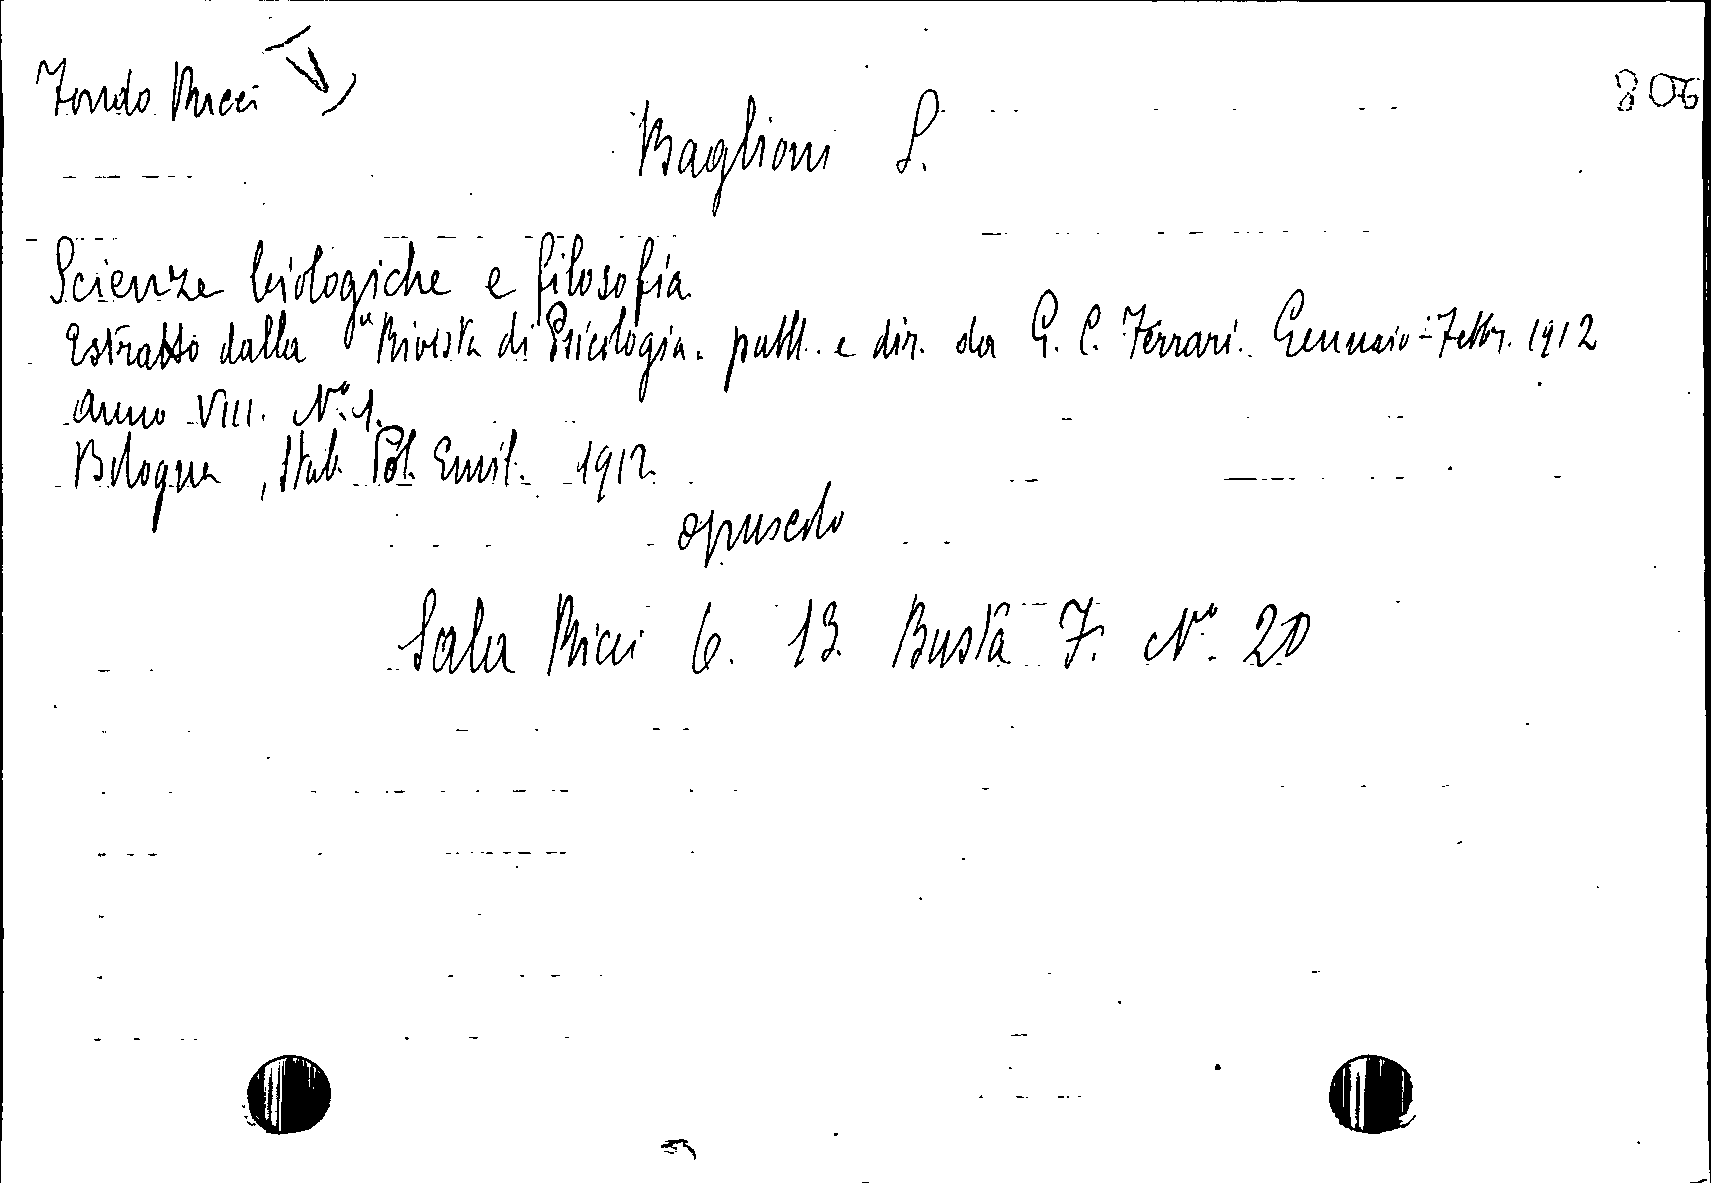 Fondo Ricci V) 806
Baglioni S.
Scienze biologiche e filosofia
Estratto dalla "Rivista di Psicologia. pubbl. e dir. da G. C. Ferrari. Gennaio-Febbr. 1912
Anno VIII. No. 1.
Bologna, Stab. Pol. Emil. 1912
opuscolo
Sala Ricci 6. 13. Busta 7. No. 20